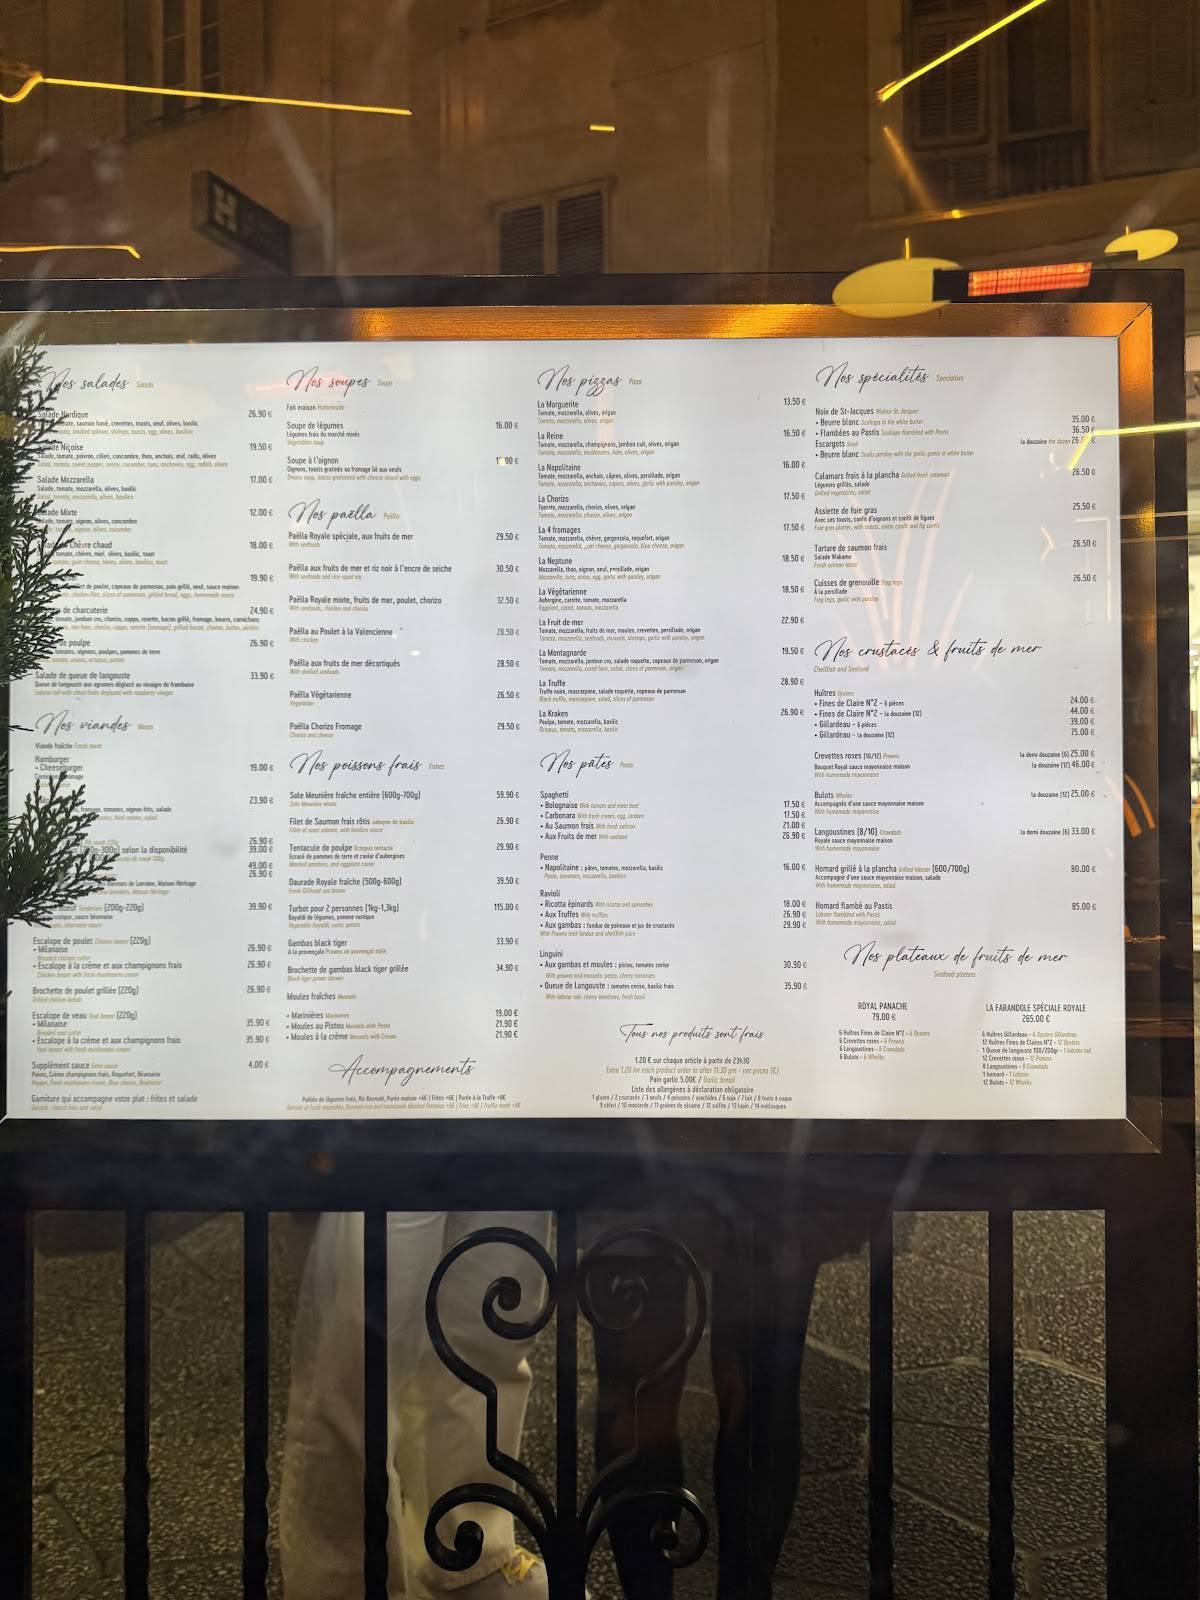 H
Nos salades Salads
Salade Nordique 26.90 €
tomate, saumon fumé, crevettes, toasts, œuf, olives, basilic
smoked salmon, shrimps, toasts, egg, olives, basilica
Niçoise 19.50 €
Salade, tomate, poivron, céleri, concombre, thon, anchois, œuf, radis, olives
Salad, tomato, sweet pepper, celery, cucumber, tuna, anchovies, egg, radish, olives
Salade Mozzarella 17.00 €
Salade, tomate, mozzarella, olives, basilic
Salad, tomato, mozzarella, olives, basilica
Salade Mixte 12.00 €
Salade, tomate, oignon, olives, concombre
tomato, onion, olives, cucumber
Chèvre chaud 18.00 €
tomate, chèvre, miel, olives, basilic, toast
tomato, goat cheese, honey, olives, basilica, toast
19.90 €
de poulet, copeaux de parmesan, pain grillé, œuf, sauce maison
chicken filet, slices of parmesan, grilled bread, eggs, homemade sauce
de charcuterie 24.90 €
tomate, jambon cru, chorizo, coppa, rosette, bacon grillé, fromage, beurre, cornichons
raw ham, chorizo, coppa, rosette (sausage), grilled bacon, cheese, butter, pickles
de poulpe 26.90 €
tomates, oignons, poulpes, pommes de terre
tomato, onions, octopus, potato
Salade de queue de langouste 33.90 €
Queue de langouste aux agrumes déglacé au vinaigre de framboise
Lobster tail with citrus fruits deglazed with raspberry vinegar
Nos viandes Meats
Viande fraîche Fresh meat
Hamburger
• Cheeseburger 19.00 €
23.90 €
fromage, tomates, oignon frits, salade
fried onions, salad
26.90 €
selon la disponibilité 39.00 €
49.00 €
26.90 €
de Lorraine, Maison Héritage
Tenderloin (200g-220g) 39.90 €
rustique, sauce béarnaise
Escalope de poulet Chicken breast (220g)
• Milanaise 26.90 €
Breaded chicken cutlet
• Escalope à la crème et aux champignons frais 26.90 €
Chicken breast with fresh mushrooms cream
Brochette de poulet grillée (220g) 26.90 €
Grilled chicken kebab
Escalope de veau Veal breast (220g)
• Milanaise 35.90 €
Breaded veal cutlet
• Escalope à la crème et aux champignons frais 35.90 €
Veal breast with fresh mushrooms cream
Supplément sauce Extra sauce 4.00 €
Poivre, Crème champignons frais, Roquefort, Béarnaise
Pepper, Fresh mushrooms cream, Blue cheese, Bearnaise
Garniture qui accompagne votre plat : frites et salade
Garnish : french fries and salad
Nos soupes Soups
Fait maison Homemade
Soupe de légumes 16.00 €
Légumes frais du marché mixés
Vegetables soup
Soupe à l'oignon
Oignons, toasts gratinés au fromage lié aux œufs
Onions soup, toasts gratinated with cheese mixed with eggs
Nos paëlla Paëlla
Paëlla Royale spéciale, aux fruits de mer 29.50 €
With seafoods
Paëlla aux fruits de mer et riz noir à l'encre de seiche 30.50 €
With seafoods and rice squid ink
Paëlla Royale mixte, fruits de mer, poulet, chorizo 32.50 €
With seafoods, chicken and chorizo
Paëlla au Poulet à la Valencienne 28.50 €
With chicken
Paëlla aux fruits de mer décortiqués 28.50 €
With shelled seafoods
Paëlla Végétarienne 26.50 €
Vegetarian
Paëlla Chorizo Fromage 29.50 €
Chorizo and cheese
Nos poissons frais Fishes
Sole Meunière fraîche entière (600g-700g) 59.90 €
Sole Meunière whole
Filet de Saumon frais rôtis sabayon de basilic 26.90 €
Fillet of roast salmon, with basilica sauce
Tentacule de poulpe Octopus tentacle 29.90 €
Ecrasé de pommes de terre et caviar d'aubergines
Mashed potatoes, and eggplant caviar
Daurade Royale fraîche (500g-600g) 39.50 €
Fresh Gilthead sea bream
Turbot pour 2 personnes (1kg-1,3kg) 115.00 €
Bayaldi de légumes, pomme rustique
Vegetable bayaldi, rustic potato
Gambas black tiger 33.90 €
À la provençale Prawns on provençal style
Brochette de gambas black tiger grillée 34.90 €
Black tiger prawn skewer
Moules fraîches Mussels
• Marinières Marinières 19.00 €
• Moules au Pistou Mussels with Pesto 21.90 €
• Moules à la crème Mussels with Cream 21.90 €
Accompagnements
Poêlée de légumes frais, Riz Basmati, Purée maison +6€ | Frites +6€ | Purée à la Truffe +8€
Garnish of fresh vegetable, Basmati rice and homemade Mashed Potatoes +6€ | Fries +6€ | Truffle mash +8€
Nos pizzas Pizza
La Marguerite 13.50 €
Tomate, mozzarella, olives, origan
Tomato, mozzarella, olives, origan
La Reine 16.50 €
Tomate, mozzarella, champignons, jambon cuit, olives, origan
Tomato, mozzarella, mushrooms, ham, olives, origan
La Napolitaine 16.00 €
Tomate, mozzarella, anchois, câpres, olives, persillade, origan
Tomato, mozzarella, anchovies, capers, olives, garlic with parsley, origan
La Chorizo 17.50 €
Tomate, mozzarella, chorizo, olives, origan
Tomato, mozzarella, chorizo, olives, origan
La 4 fromages 17.50 €
Tomate, mozzarella, chèvre, gorgonzola, roquefort, origan
Tomato, mozzarella, goat cheese, gorgonzola, blue cheese, origan
La Neptune 18.50 €
Mozzarella, thon, oignon, œuf, persillade, origan
Mozzarella, tuna, onion, egg, garlic with parsley, origan
La Végétarienne 18.50 €
Aubergine, carotte, tomate, mozzarella
Eggplant, carrot, tomato, mozzarella
La Fruit de mer 22.90 €
Tomate, mozzarella, fruits de mer, moules, crevettes, persillade, origan
Tomato, mozzarella, seafoods, mussels, shrimps, garlic with parsley, origan
La Montagnarde 19.50 €
Tomate, mozzarella, jambon cru, salade roquette, copeaux de parmesan, origan
Tomato, mozzarella, cured ham, salad, slices of parmesan, origan
La Truffe 28.90 €
Truffe noire, mascarpone, salade roquette, copeaux de parmesan
Black truffle, mascarpone, salad, slices of parmesan
La Kraken 26.90 €
Poulpe, tomate, mozzarella, basilic
Octopus, tomato, mozzarella, basilic
Nos pâtes Pasta
Spaghetti
• Bolognaise With tomato and meet beef 17.50 €
• Carbonara With fresh cream, egg, lardons 17.50 €
• Au Saumon frais With fresh salmon 21.00 €
• Aux Fruits de mer With seafood 26.90 €
Penne
• Napolitaine : pâtes, tomates, mozzarella, basilic 16.00 €
Pasta, tomatoes, mozzarella, basilica
Ravioli
• Ricotta épinards With ricotta and spinashes 18.00 €
• Aux Truffes With truffles 26.90 €
• Aux gambas : fondue de poireaux et jus de crustacés 29.90 €
With Prawns leek fondue and shellfish juice
Linguini
• Aux gambas et moules : pistou, tomates cerise 30.90 €
With prawns and mussels: pesto, cherry tomatoes
• Queue de Langouste : tomates cerise, basilic frais 35.90 €
With lobster tail: cherry tomatoes, fresh basil
Tous nos produits sont frais
1.20 € sur chaque article à partir de 23h30
Extra 1.20 for each product order to after 11:30 pm - net prices (€)
Pain garlic 5.00€ / Garlic bread
Liste des allergènes à déclaration obligatoire
1 gluten / 2 crustacés / 3 œufs / 4 poissons / arachides / 6 soja / 7 lait / 8 fruits à coque
9 céleri / 10 moutarde / 11 graines de sésame / 12 sulfite / 13 lupin / 14 mollusques
Nos spécialités Specialties
Noix de St-Jacques Walnut St. Jacques
• Beurre blanc Scallops in the white butter 35.00 €
• Flambées au Pastis Scallops flambéed with Pastis 36.50 €
Escargots Snail la douzaine the dozen
• Beurre blanc Snails parsley with the garlic gratin in white butter
Calamars frais à la plancha Grilled fresh calamari 26.50 €
Légumes grillés, salade
Grilled vegetables, salad
Assiette de foie gras 25.50 €
Avec ses toasts, confit d'oignons et confit de figues
Foie gras platter, with toasts, onion confit and fig confit
Tartare de saumon frais 26.50 €
Salade Wakame
Fresh salmon tartar
Cuisses de grenouille Frog legs 26.50 €
À la persillade
Frog legs, garlic with parsley
Nos crustacés & fruits de mer
Chellfish and Seafood
Huîtres Oysters
• Fines de Claire N°2 - 6 pièces 24.00 €
• Fines de Claire N°2 - la douzaine (12) 44.00 €
• Gillardeau - 6 pièces 39.00 €
• Gillardeau - la douzaine (12) 75.00 €
Crevettes roses (10/12) Prawns la demi douzaine (6) 25.00 €
Bouquet Royal sauce mayonnaise maison la douzaine (12) 46.00 €
With homemade mayonnaise
Bulots Whelks la douzaine (12) 25.00 €
Accompagnés d'une sauce mayonnaise maison
With homemade mayonnaise
Langoustines (8/10) Crawdads la demi douzaine (6) 33.00 €
Royale sauce mayonnaise maison
With homemade mayonnaise
Homard grillé à la plancha Grilled lobster (600/700g) 80.00 €
Accompagné d'une sauce mayonnaise maison, salade
With homemade mayonnaise, salad
Homard flambé au Pastis 85.00 €
Lobster flambéed with Pastis
With homemade mayonnaise, salad
Nos plateaux de fruits de mer
Seafood platters
ROYAL PANACHE
79.00 €
6 Huîtres Fines de Claire N°2 - 6 Oysters
6 Crevettes roses - 6 Prawns
6 Langoustines - 6 Crawdads
6 Bulots - 6 Whelks
LA FARANDOLE SPÉCIALE ROYALE
265.00 €
6 Huîtres Gillardeau - 6 Oysters Gillardeau
12 Huîtres Fines de Claires N°2 - 12 Oysters
1 Queue de langouste 180/200gr - 1 lobster tail
12 Crevettes roses - 12 Prawns
8 Langoustines - 8 Crawdads
1 homard - 1 Lobster
12 Bulots - 12 Whelks